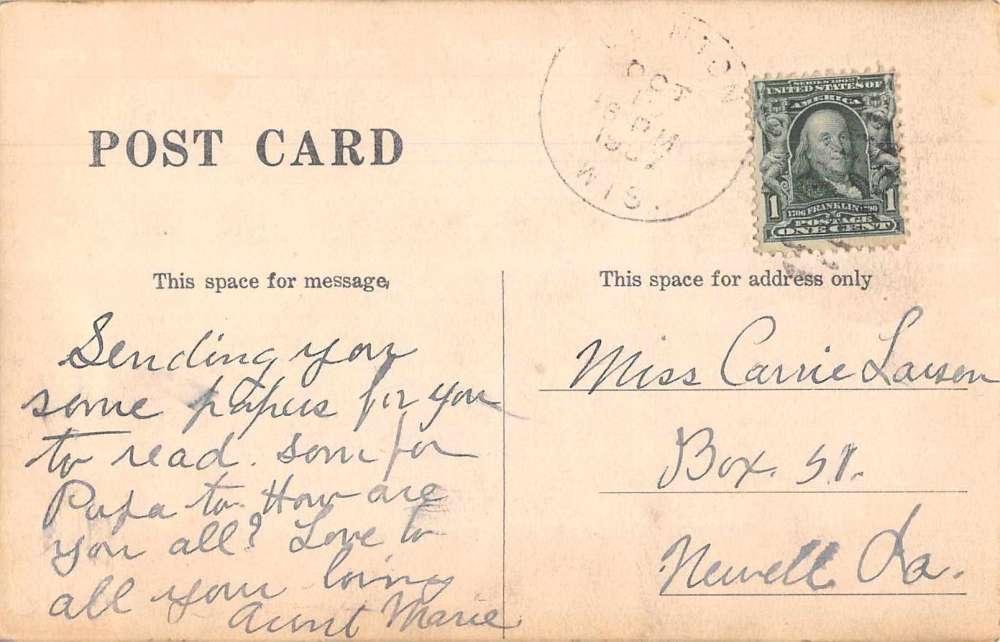 POST CARD
OCT
6 PM
1907
WIS.
SERIES 1902
UNITED STATES OF
AMERICA
1 1706 FRANKLIN 1790 1
POSTAGE
ONE CENT
This space for message
This space for address only
Sending you
some papers for you
to read. som for
Papa to. How are
you all? Love to
all your loving
Aunt Marie
Miss Carrie Larsen
Box. 51.
Newell Ia.